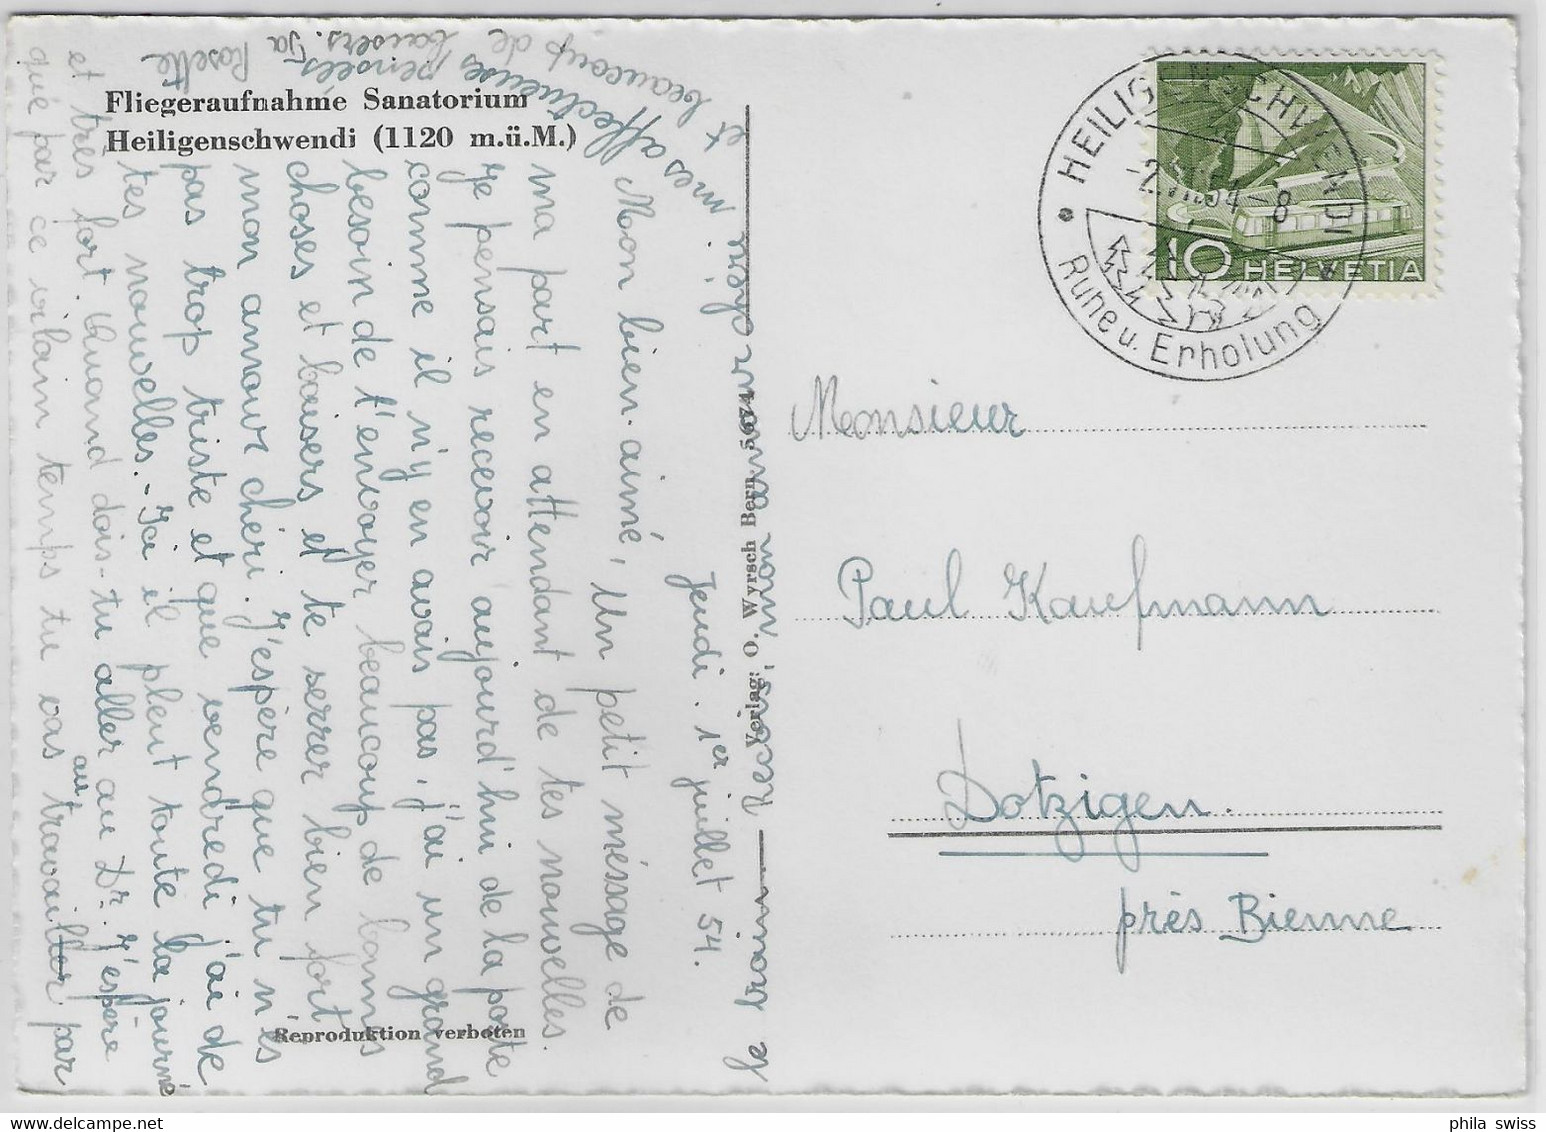 Fliegeraufnahme Sanatorium
Heiligenschwendi (1120 m.ü.M.)
Jeudi. 1er juillet 54.
Mon bien-aimé, Un petit méssage de
ma part en attendant de tes nouvelles.
Je pensais recevoir aujourd'hui de la poste
comme il n'y en avais pas, j'ai un grand
besoin de t'envoyer beaucoup de bonnes
choses et baisers et te serrer bien fort
mon amour chéri. J'espère que tu n'es
pas trop triste et que vendredi j'ai de
tes nouvelles. - Ici il pleut toute la journé
et très fort. Quand dois-tu aller au Dr. J'espère
que par ce vilain temps tu vas au travailler par
le train
Recois, mon amour
mes affectueuses pensées
et beaucoup de
baisers. Ta
Rosette
Verlag: O. Wyrsch Bern 5674
Reproduktion verboten
HEILIGENSCHWENDI
-2.VII.54-8
Ruhe u. Erholung
10 HELVETIA
Monsieur
Paul Kaufmann
Dotzigen
près Bienne
phila swiss